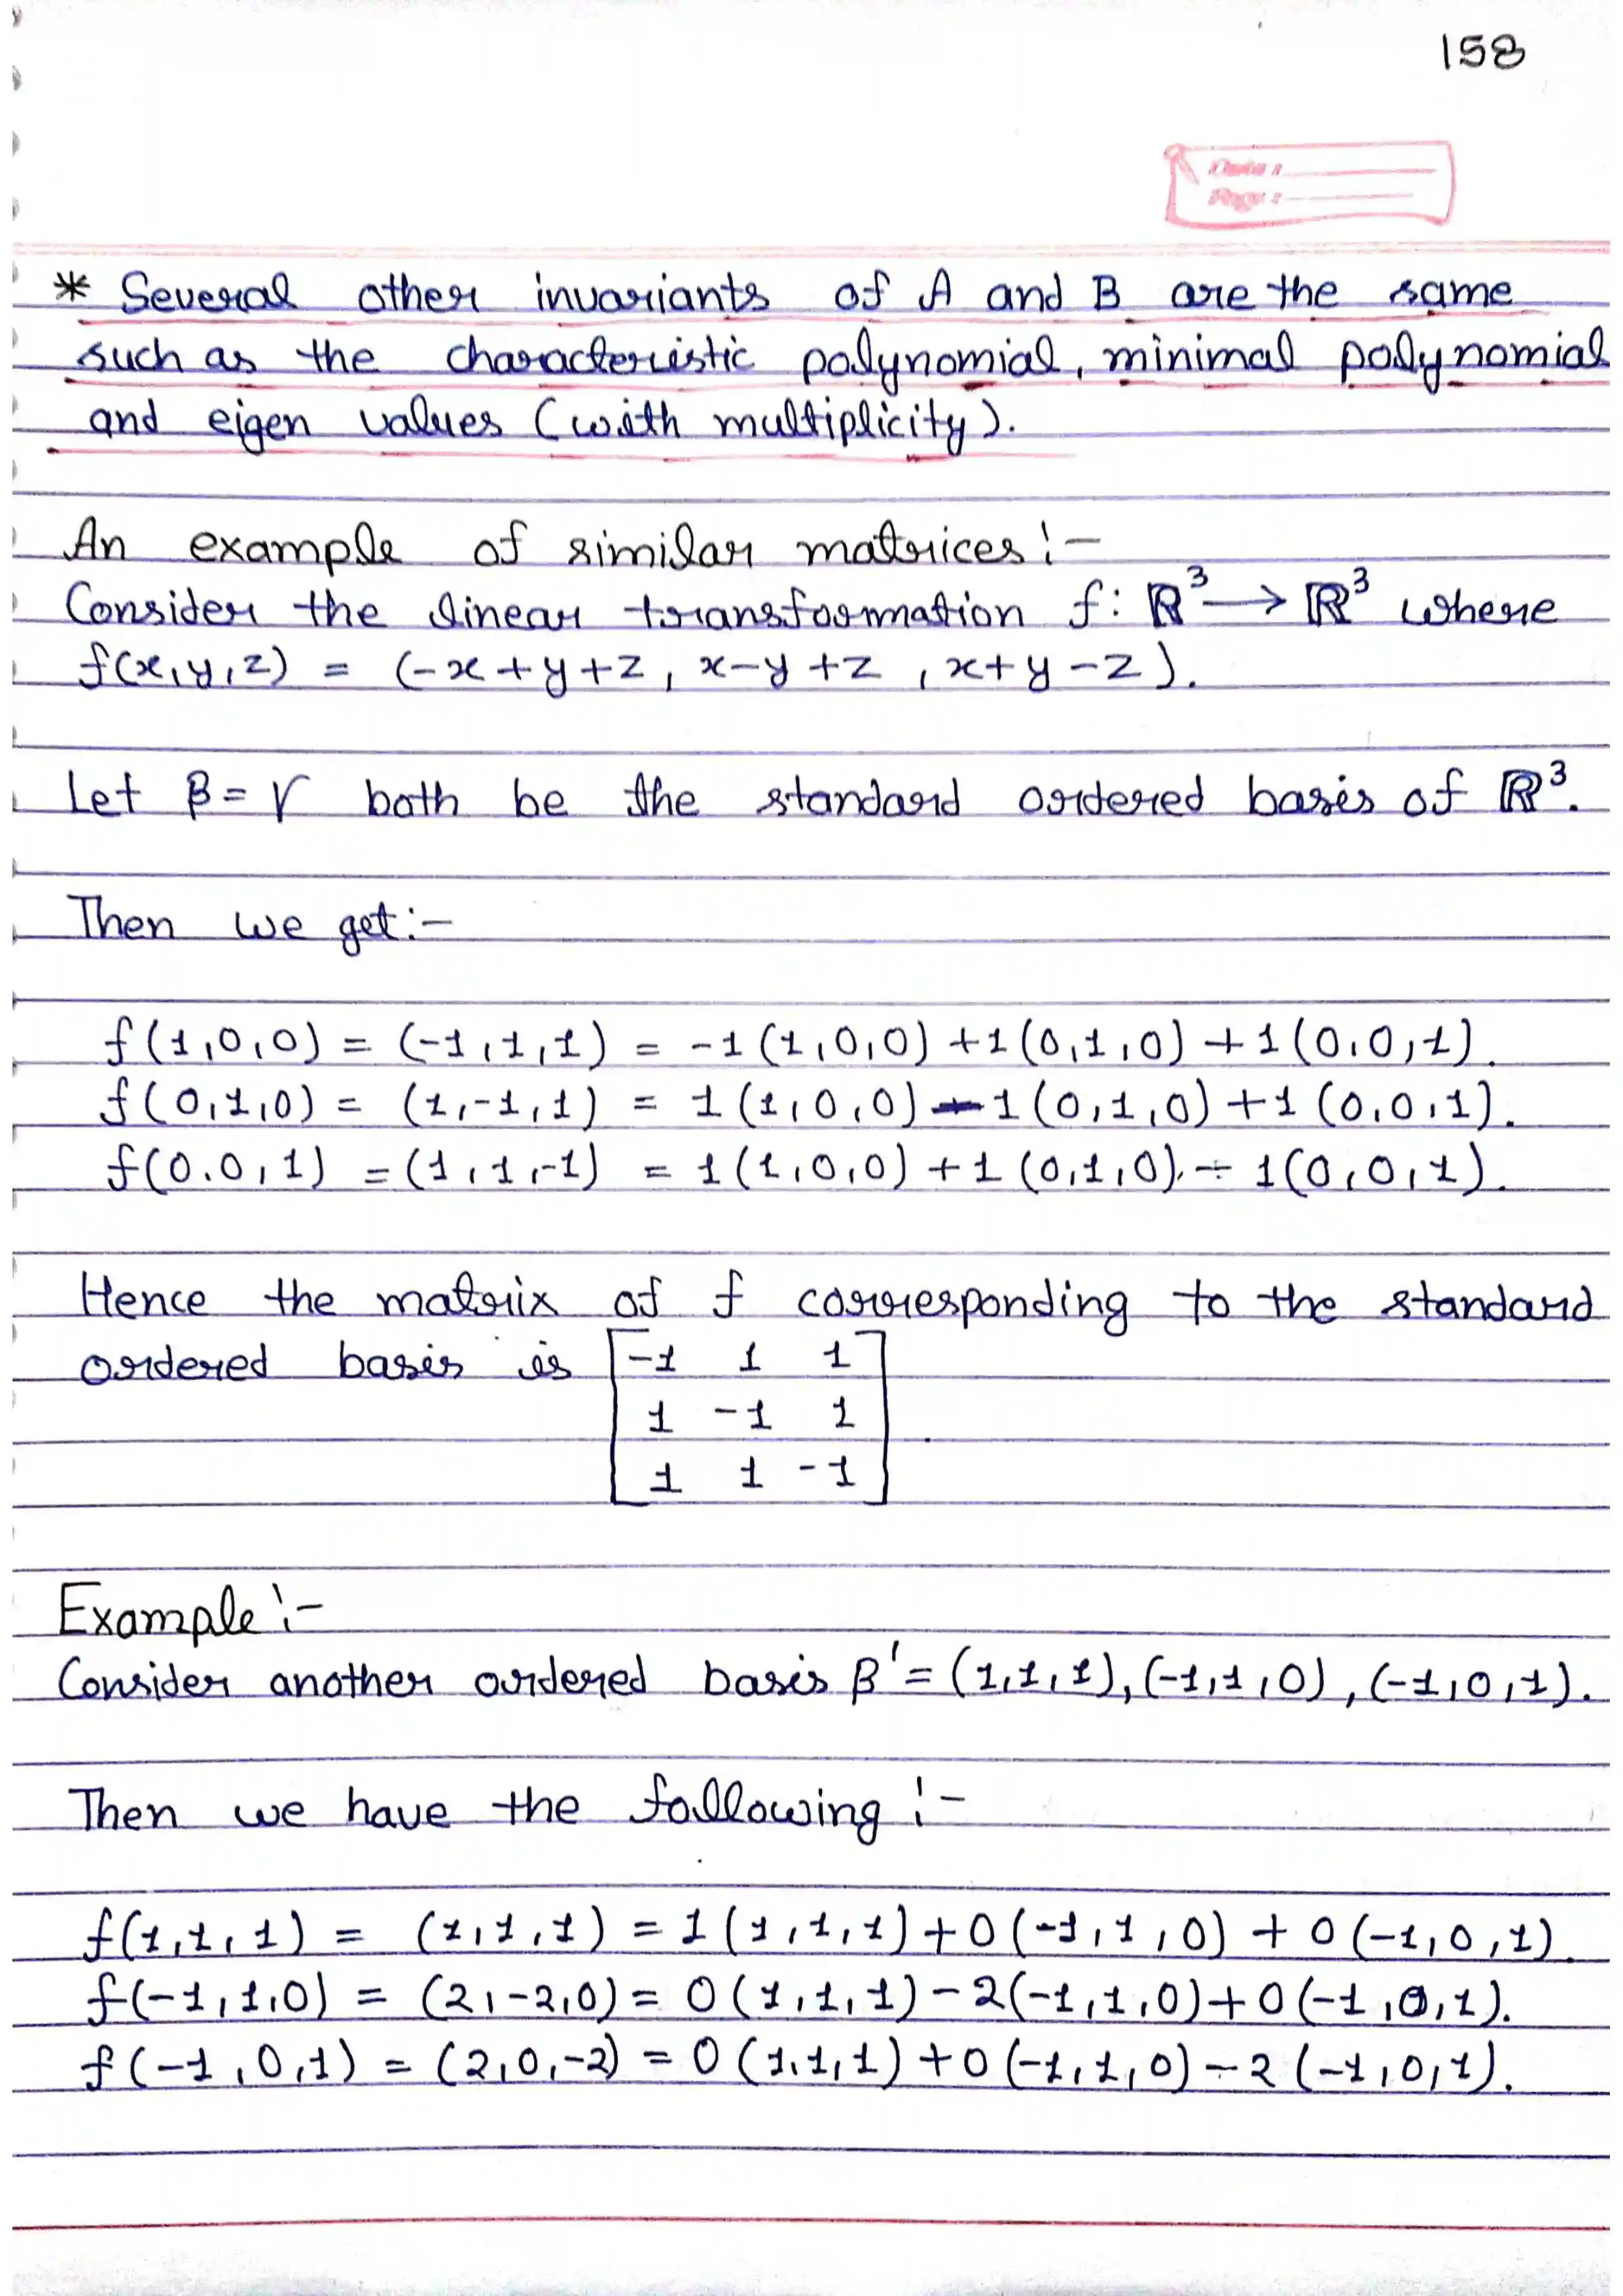 158
Date :
Page :
* Several other invariants of A and B are the same
such as the characteristic polynomial, minimal polynomial
and eigen values (with multiplicity).
An example of similar matrices :-
Consider the linear transformation f: ℝ³ → ℝ³ where
f(x,y,z) = (-x+y+z, x-y+z, x+y-z).
Let β = γ both be the standard ordered basis of ℝ³.
Then we get :-
f(1,0,0) = (-1,1,1) = -1(1,0,0) +1(0,1,0) +1(0,0,1).
f(0,1,0) = (1,-1,1) = 1(1,0,0) -1(0,1,0) +1(0,0,1).
f(0.0,1) = (1,1,-1) = 1(1,0,0) +1(0,1,0) - 1(0,0,1).
Hence the matrix of f corresponding to the standard
ordered basis is [-1 1 1
1 -1 1
1 1 -1].
Example :-
Consider another ordered basis β' = (1,1,1), (-1,1,0), (-1,0,1).
Then we have the following :-
f(1,1,1) = (1,1,1) = 1(1,1,1) +0(-1,1,0) + 0(-1,0,1).
f(-1,1,0) = (2,-2,0) = 0(1,1,1) -2(-1,1,0) +0(-1,0,1).
f(-1,0,1) = (2,0,-2) = 0(1,1,1) +0(-1,1,0) -2(-1,0,1).